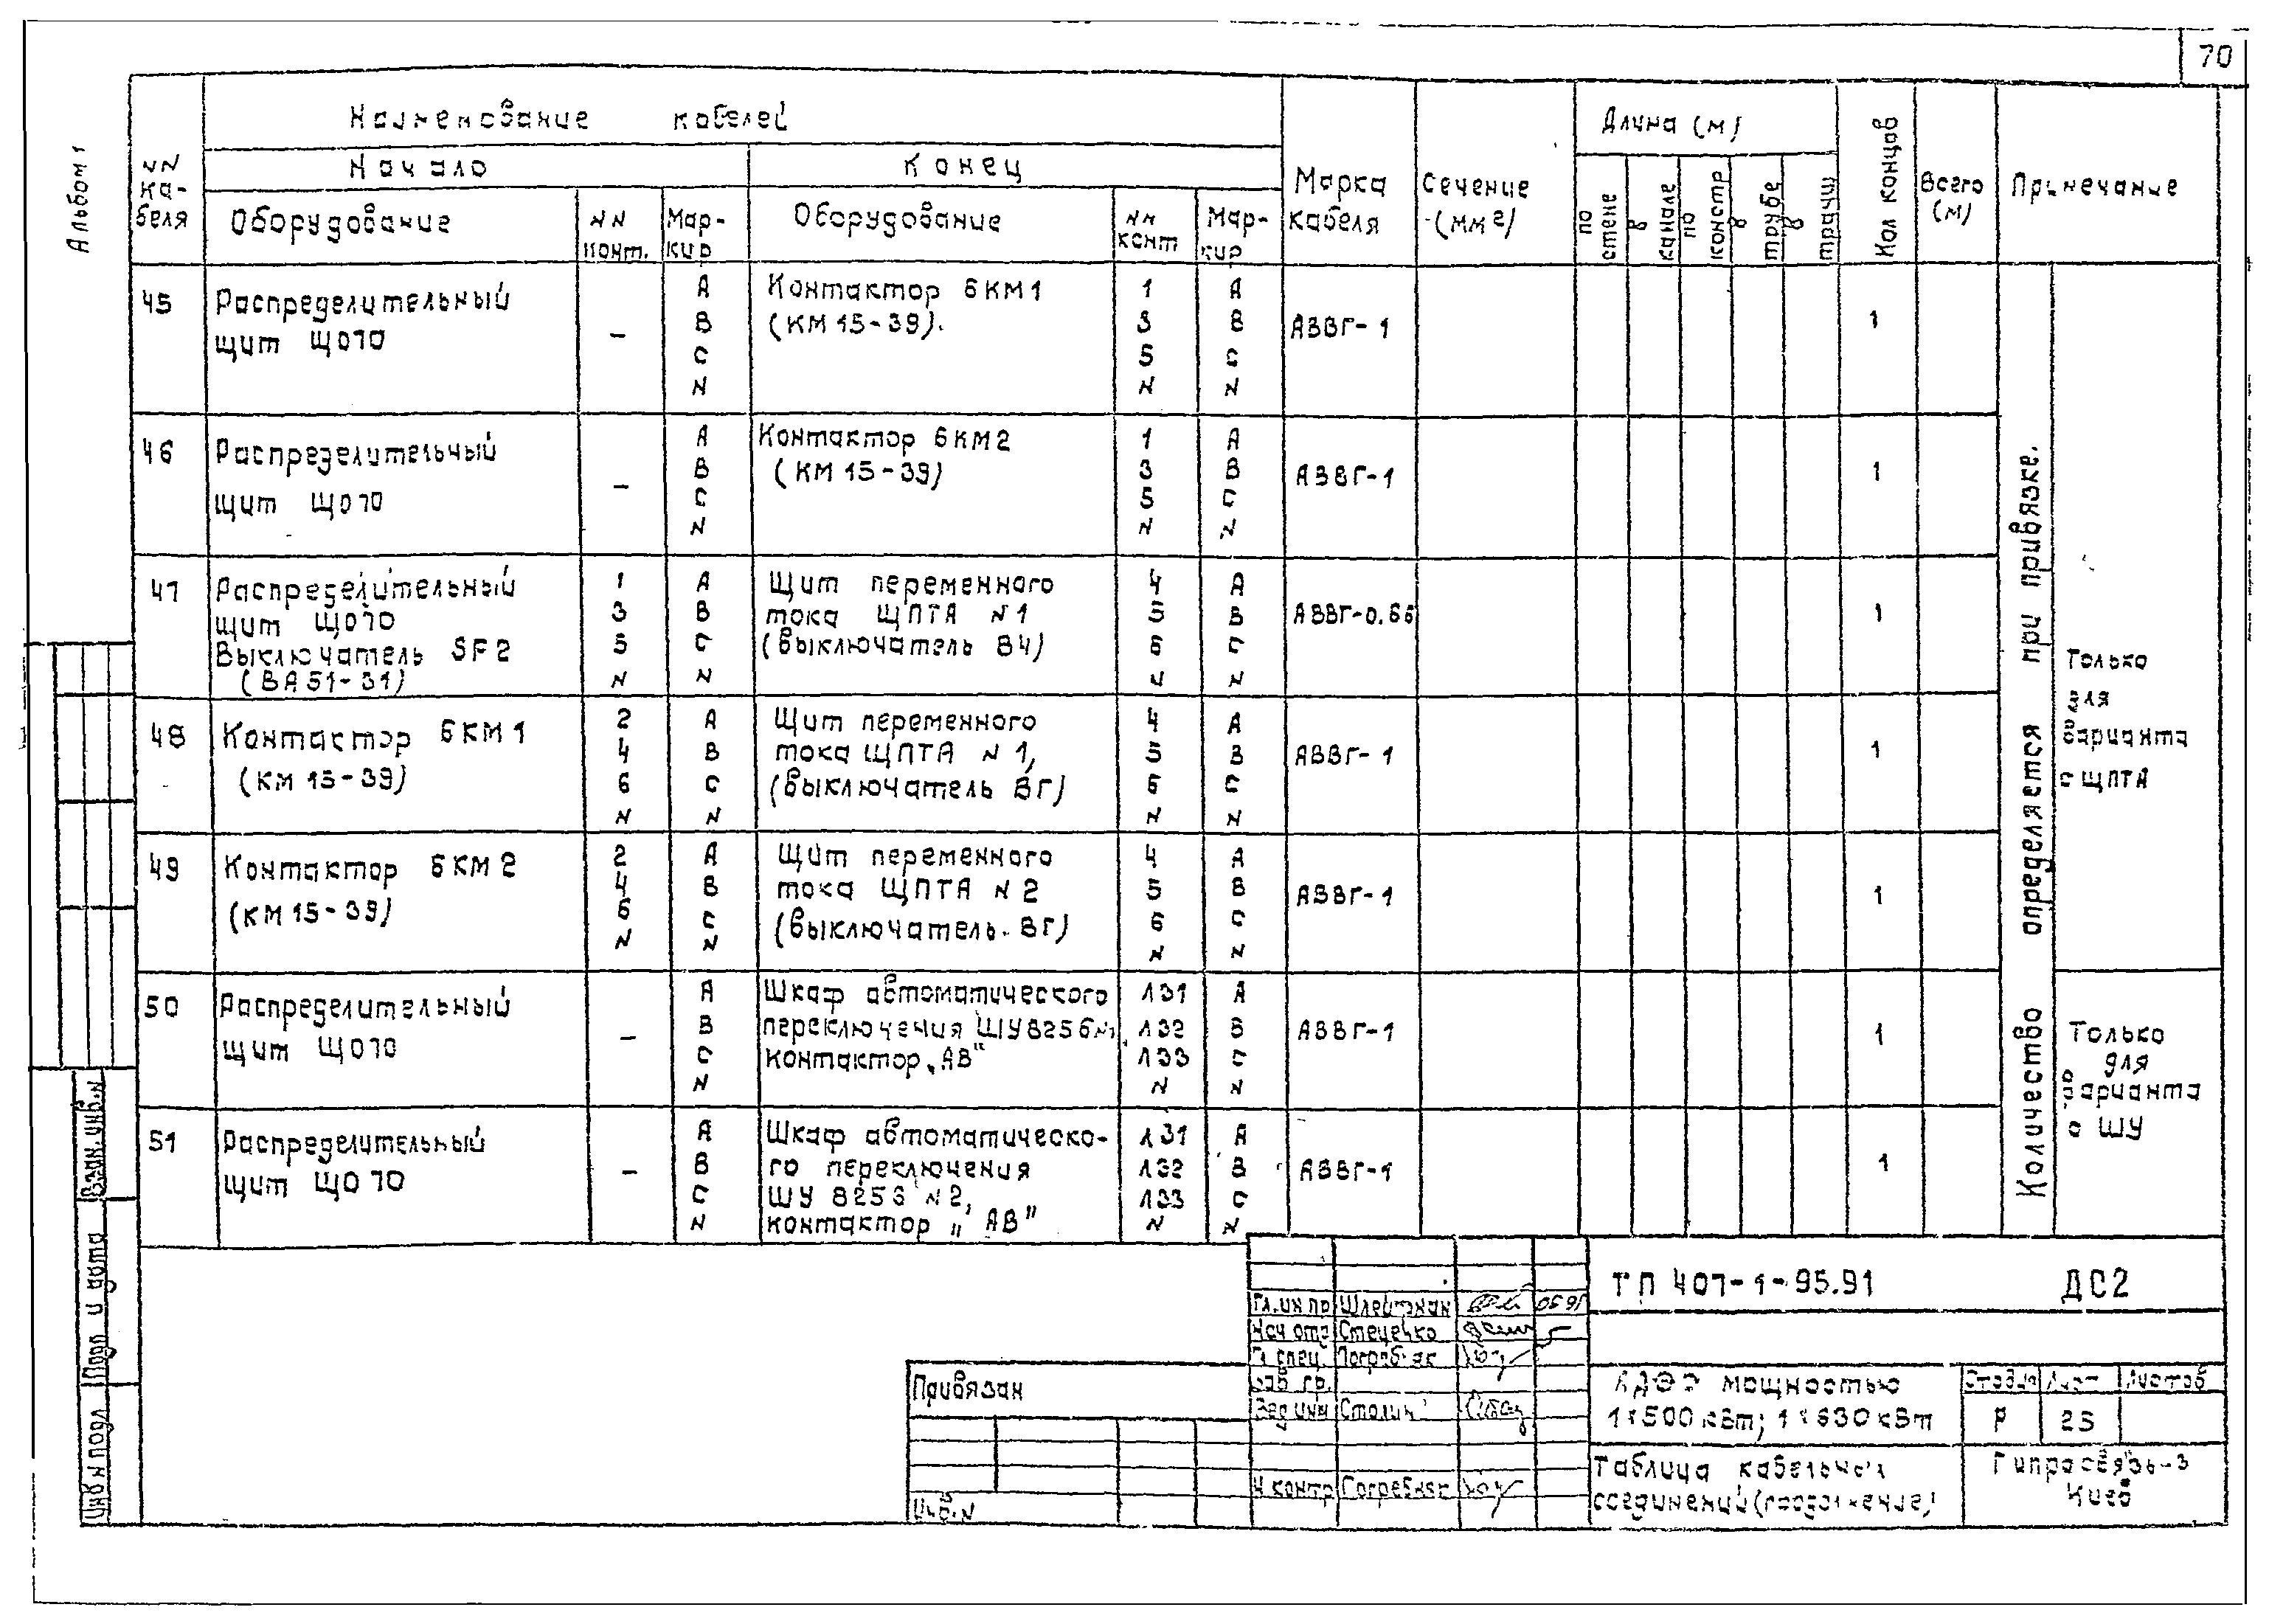 70
Альбом 1
NN
ка-
беля
Наименование кабелей
Начало
Конец
Оборудование
NN
конт.
Мар-
кир
Оборудование
NN
конт
Мар-
кир
Марка
кабеля
Сечение
(мм²)
Длина (м)
по стене
в канале
по констр
в трубе
в траншее
Кол концов
Всего
(м)
Примечание
45
Распределительный
щит ЩО70
–
А
В
С
N
Контактор 6КМ1
(КМ 15-39).
1
3
5
N
А
В
С
N
АВВГ-1
1
46
Распределительный
щит ЩО70
–
А
В
С
N
Контактор 6КМ2
(КМ 15-39)
1
3
5
N
А
В
С
N
АВВГ-1
1
47
Распределительный
щит ЩО70
Выключатель SF2
(ВА51-31)
1
3
5
N
А
В
С
N
Щит переменного
тока ЩПТА N1
(выключатель В4)
4
5
6
N
А
В
С
N
АВВГ-0.66
1
48
Контактор 6КМ1
(КМ 15-39)
2
4
6
N
А
В
С
N
Щит переменного
тока ЩПТА N1,
(выключатель ВГ)
4
5
6
N
А
В
С
N
АВВГ-1
1
49
Контактор 6КМ2
(КМ15-39)
2
4
6
N
А
В
С
N
Щит переменного
тока ЩПТА N2
(выключатель ВГ)
4
5
6
N
А
В
С
N
АВВГ-1
1
50
Распределительный
щит ЩО70
–
А
В
С
N
Шкаф автоматического
переключения ШУ8256N1,
контактор „АВ"
Л31
Л32
Л33
N
А
В
С
N
АВВГ-1
1
51
Распределительный
щит ЩО70
–
А
В
С
N
Шкаф автоматическо-
го переключения
ШУ 8256 N2,
контактор „АВ"
Л31
Л32
Л33
N
А
В
С
N
АВВГ-1
1
Количество определяется при привязке.
Только
для
варианта
с ЩПТА
Только
для
варианта
с ШУ
Взам. инв. N
Подп и дата
Инв N подл
Привязан
Инв. N
Гл. инж пр Шлейфман 05 91
Нач отд Стеценко
Гл спец. Погребняк
Зав гр.
Вед инж Столин
Н контр Погребняк
ТП 407-1-95.91 ДС2
АДЭС мощностью
1х500 кВт; 1х630 кВт
Стадия Лист Листов
Р 25
Таблица кабельных
соединений (продолжение)
Гипросвязь-3
Киев